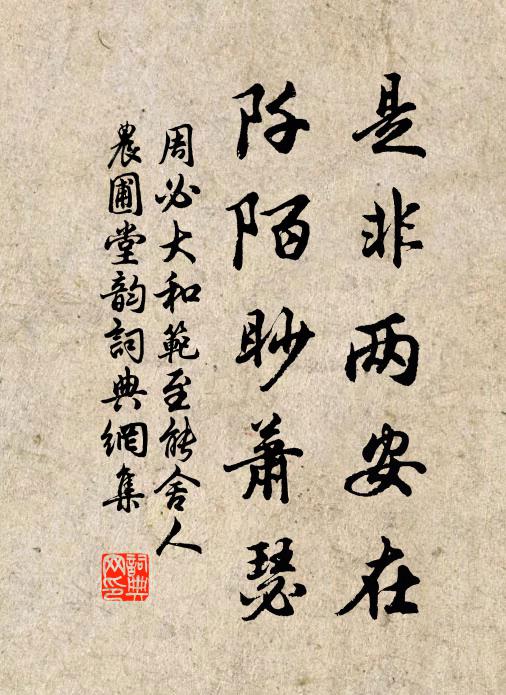 是非两安在
阡陌眇萧瑟
周必大和範至能舍人
農圃堂韵詞典網集
詞典网印